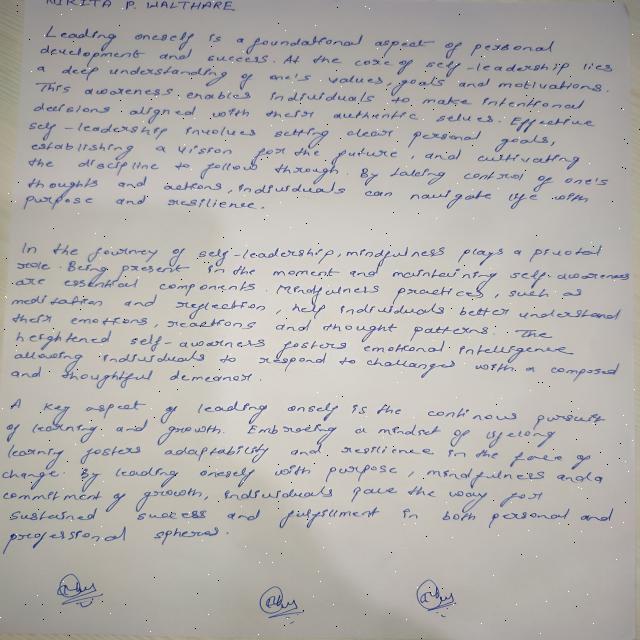 NIKITA P. WALTHARE
Leading oneself is a foundational aspect of personal
development and success. At the core of self-leadership lies
a deep understanding of one's values, goals and motivations.
This awareness enables individuals to make intentional
decisions aligned with their authentic selves. Effective
self-leadership involves setting clear personal goals,
establishing a vision for the future, and cultivating
the discipline to follow through. By taking control of one's
thoughts and actions, individuals can navigate life with
purpose and resilience.
In the journey of self-leadership, mindfulness plays a pivotal
role. Being present in the moment and maintaining self-awareness
are essential components. Mindfulness practices, such as
meditation and reflection, help individuals better understand
their emotions, reactions and thought patterns. The
heightened self-awarness fosters emotional intelligence
allowing individuals to respond to challenges with a composed
and thoughtful demeanor.
A key aspect of leading onself is the continous pursuit
of learning and growth. Embracing a mindset of lifelong
learning fosters adaptability and resilience in the face of
change. By leading oneself with purpose, mindfulness and a
commitment of growth, individuals pave the way for
sustained success and fulfillment in both personal and
professional spheres.